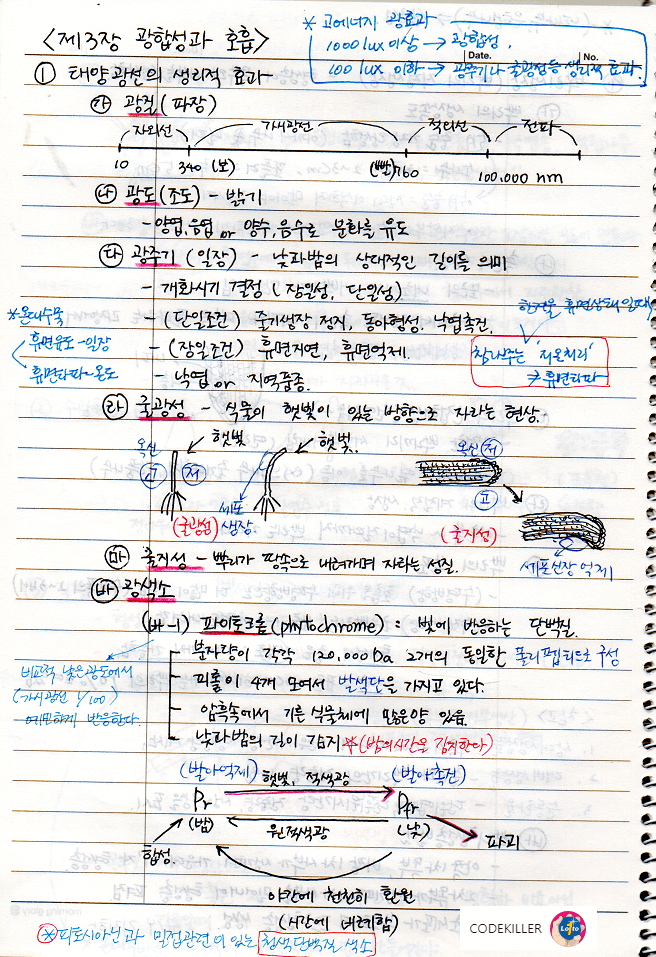 <제3장 광합성과 호흡>
* 고에너지 광효과
1000 lux 이상 → 광합성.
Date. No.
100 lux 이하 → 광주기나 굴광성등 생리적 효과.
① 태양광선의 생리적 효과
㉮ 광질 (파장)
자외선 가시광선 적외선 전파
10 340 (보) (빨) 760 100,000 nm
㉯ 광도 (조도) - 밝기
- 양엽, 음엽 or 양수, 음수로 분화를 유도
㉰ 광주기 (일장) - 낮과밤의 상대적인 길이를 의미
- 개화시기 결정 (장일성, 단일성)
*온대수목
휴면유도-일장
휴면타파-온도
- (단일조건) 줄기생장 정지, 동아형성, 낙엽촉진.
- (장일조건) 휴면지연, 휴면억제.
- 낙엽 or 지역품종.
한겨울 휴면상태일때
참나무는 '저온처리'
≠ 휴면타파
㉱ 굴광성 - 식물의 햇빛이 있는 방향으로 자라는 현상.
옥신 햇빛 햇빛. 옥신 저
고 저 고
(굴광성) 세포생장 (굴지성)
세포신장 억제
㉲ 굴지성 - 뿌리가 땅속으로 내려가며 자라는 성질.
㉳ 광색소
(바-1) 파이토크롬(phytochrome) : 빛에 반응하는 단백질.
- 분자량이 각각 120,000 Da 2개의 동일한 폴리펩티드로 구성
비교적 낮은광도에서
(가시광선 1/100)
-예민하게 반응한다.
- 피롤이 4개 모여서 발색단을 가지고 있다.
- 암흑속에서 기른 식물체에 많은양 있음.
- 낮과밤의 길이 감지 *(밤의시간을 감지한다)
(발아억제) 햇빛, 적색광 (발아촉진)
Pr Pfr
(밤) 원적색광 (낮)
합성. 파괴
야간에 천천히 환원
(시간에 비례함)
CODEKILLER
Lotto
*피토시아닌과 밀접관련이 있는 청색단백질 색소